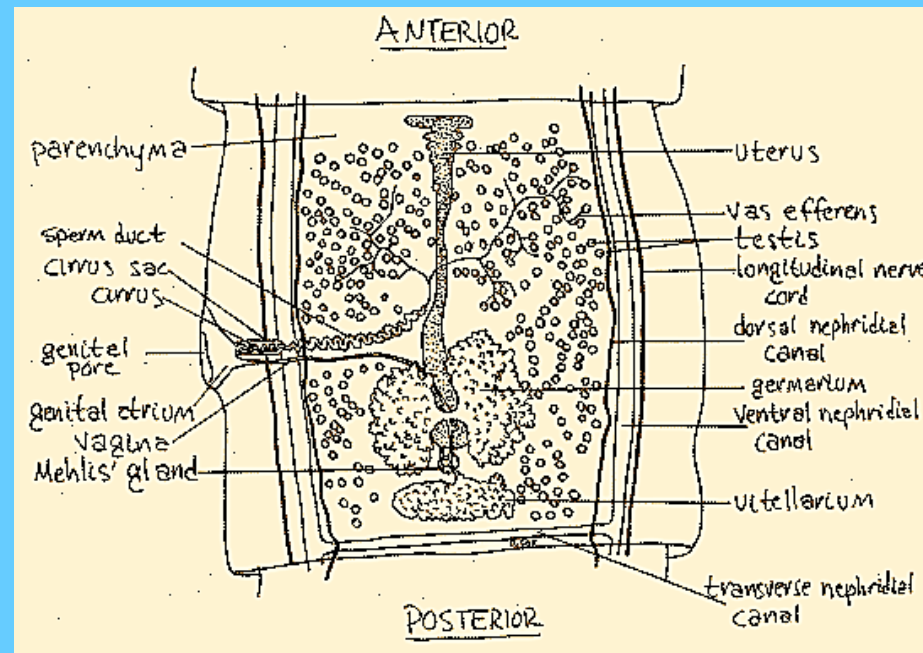 ANTERIOR
parenchyma
sperm duct
cirrus sac
cirrus
genital
pore
genital atrium
vagina
Mehlis' gland
uterus
vas efferens
testis
longitudinal nerve
cord
dorsal nephridial
canal
germarium
ventral nephridial
canal
vitellarium
transverse nephridial
canal
POSTERIOR